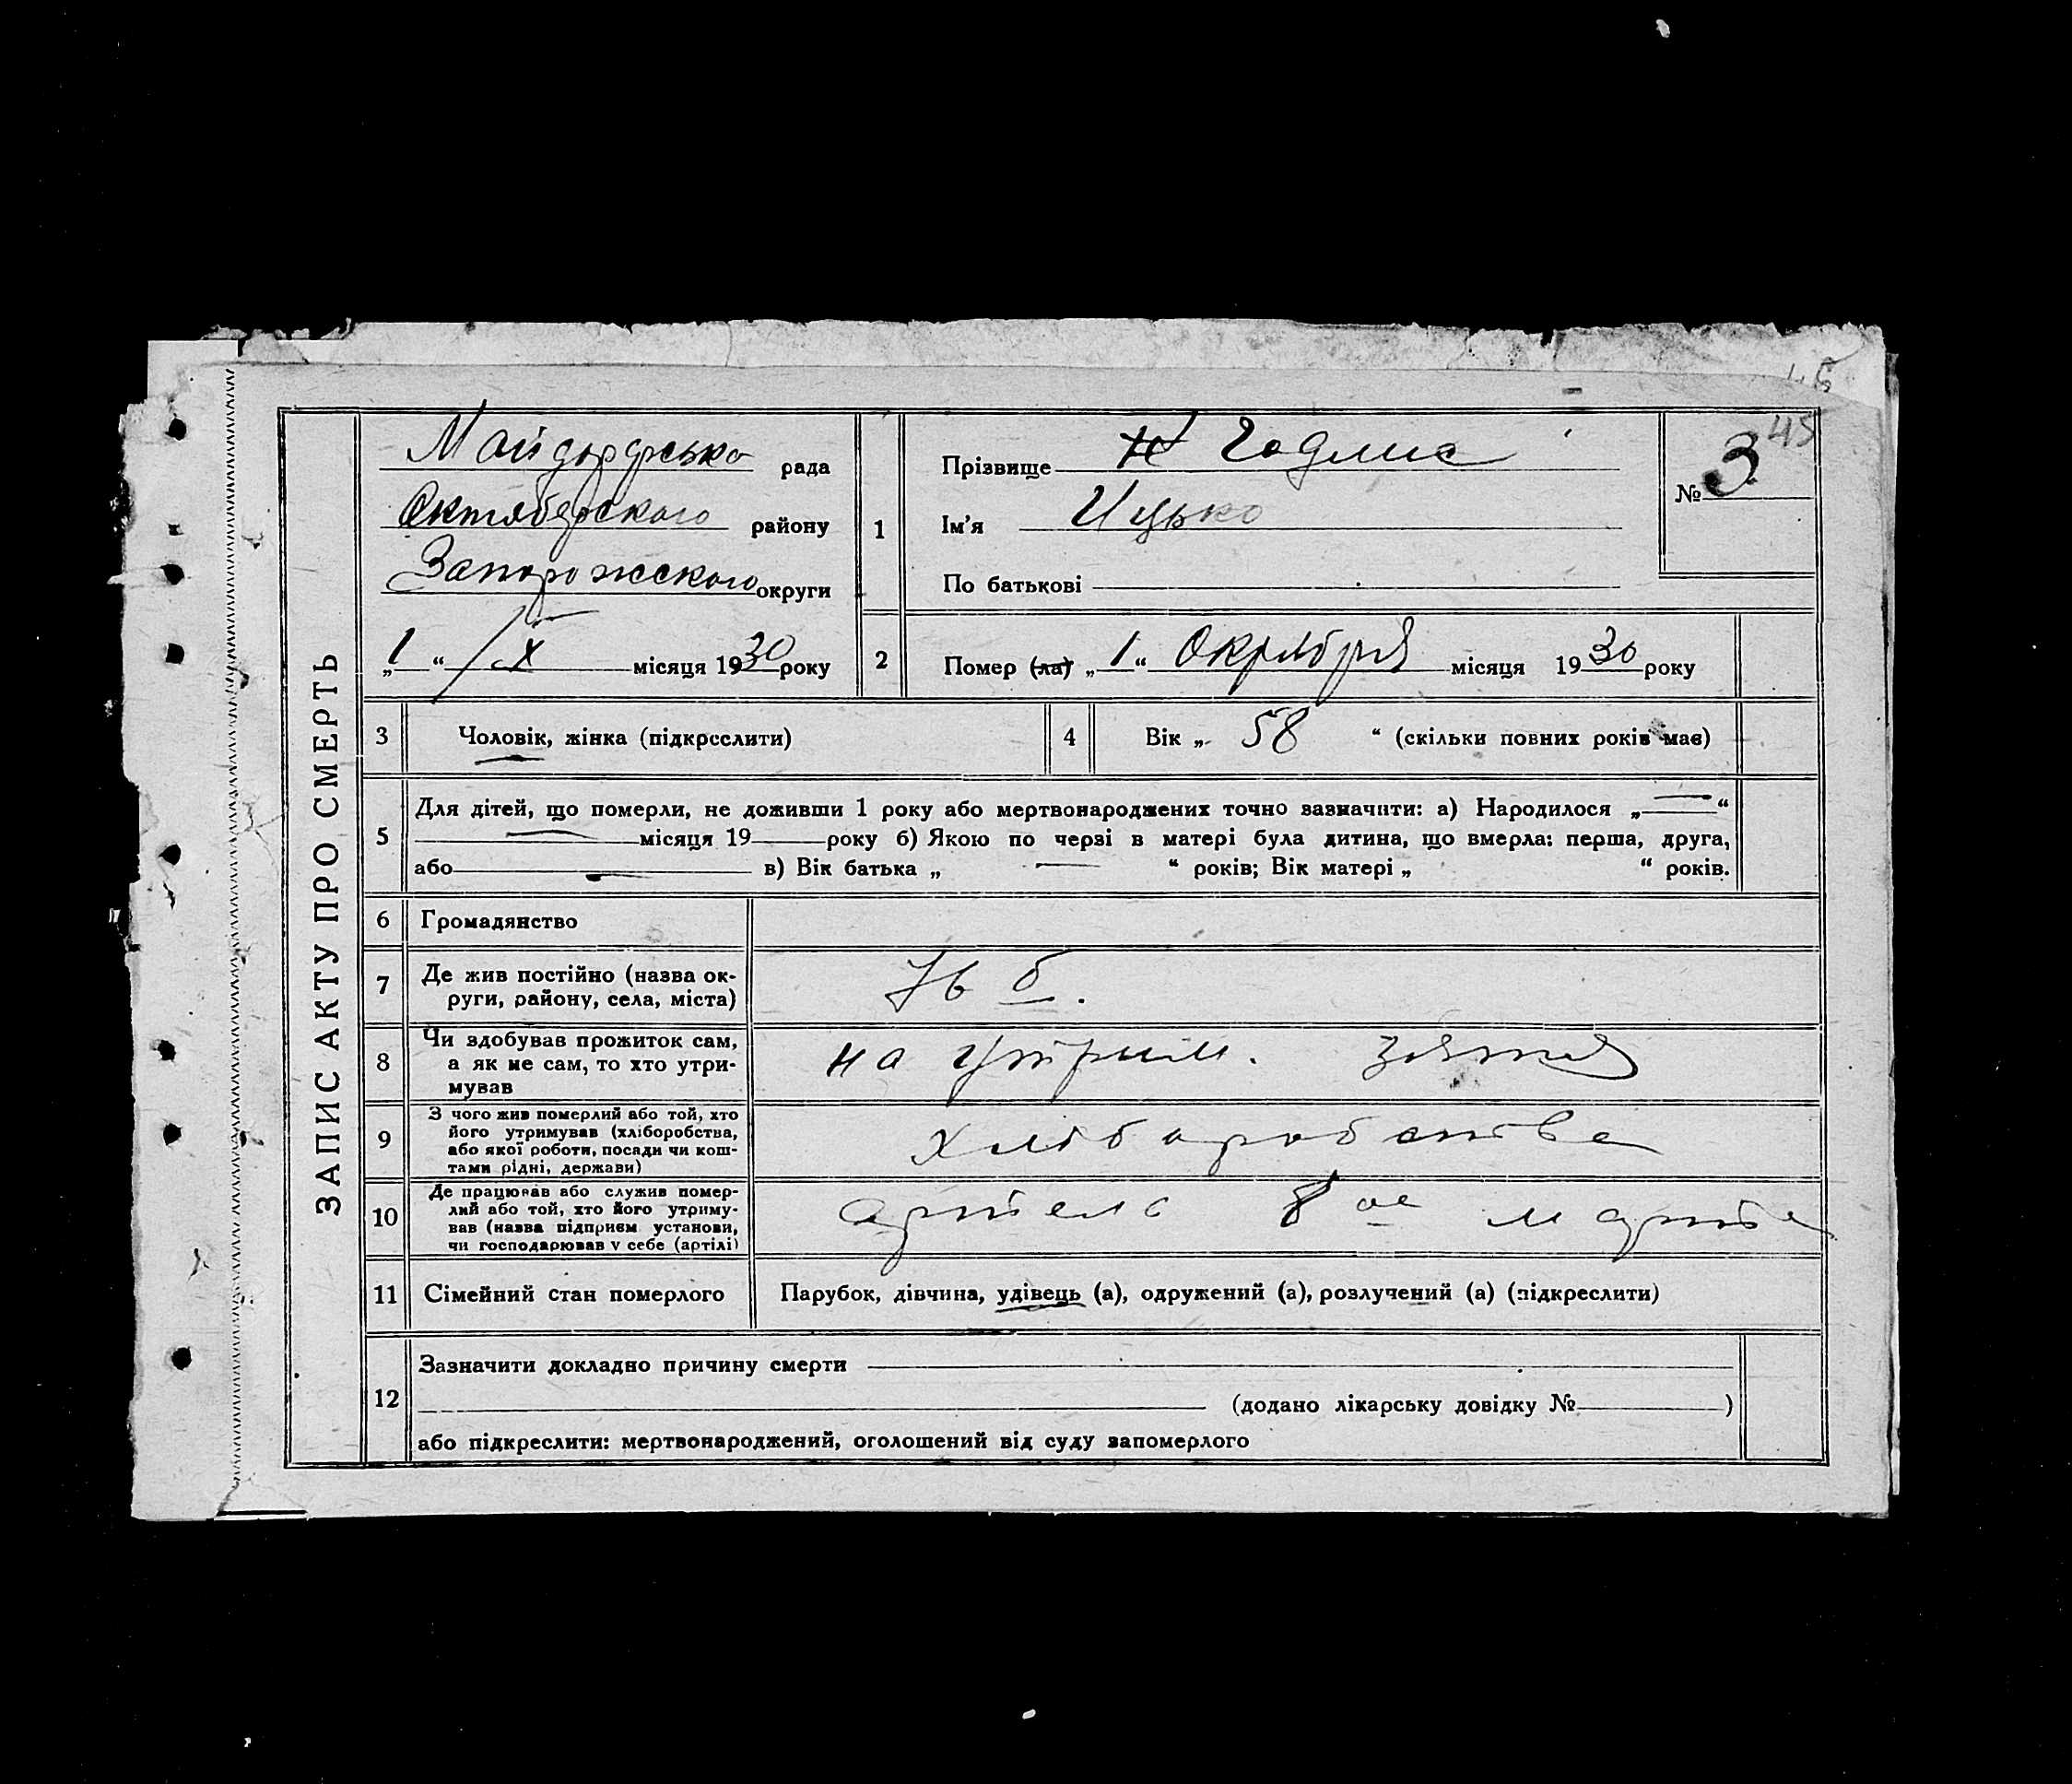 ЗАПИС АКТУ ПРО СМЕРТЬ
45
рада
Октябрского району
Запорожского округи
„1“ /X місяця 1930 року
1
Прізвище Гадлис
Ім'я Ицько
По батькові
№ 3
45
2
Помер (ла) „1“ Октября місяця 1930 року
3 Чоловік, жінка (підкреслити)
4 Вік „58“ (скільки повних років має)
5 Для дітей, що померли, не доживши 1 року або мертвонароджених точно зазначити: а) Народилося „—“
— місяця 19 року б) Якою по черзі в матері була дитина, що вмерла: перша, друга,
або — в) Вік батька „ — “ років; Вік матері „ “ років.
6 Громадянство
7 Де жив постійно (назва ок-
руги, району, села, міста)
8 Чи здобував прожиток сам,
а як не сам, то хто утри-
мував
на утрим. зятя
9 З чого жив померлий або той, хто
його утримував (хліборобства,
або якої роботи, посади чи кош-
тами рідні, держави)
хліборобства
10 Де працював або служив помер-
лий або той, хто його утриму-
вав (назва підприєм. установи,
чи господарював у себе (артілі)
артель 8ое марта
11 Сімейний стан померлого
Парубок, дівчина, удівець (а), одружений (а), розлучений (а) (підкреслити)
12 Зазначити докладно причину смерти
(додано лікарську довідку № )
або підкреслити: мертвонароджений, оголошений від суду запомерлого